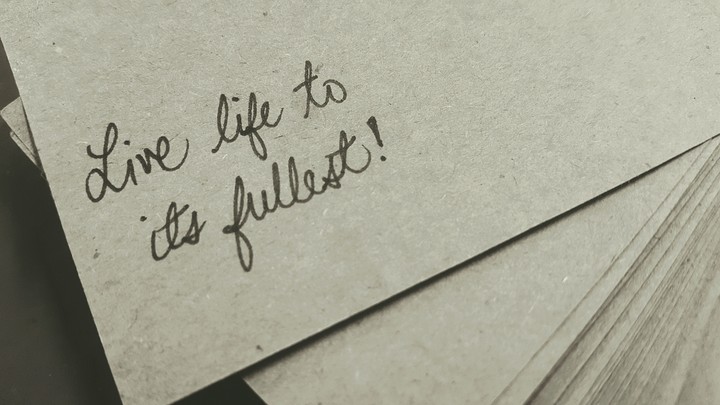 Live life to
its fullest!